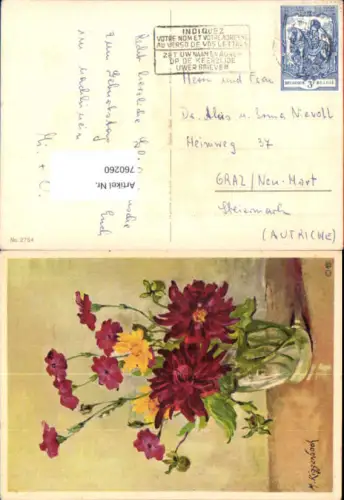 INDIQUEZ
VOTRE NOM ET VOTRE ADRESSE
AU VERSO DE VOS LETTRES
ZET UW NAAM EN ADRES
OP DE KEERZIJDE
UWER BRIEVEN
BELGIQUE BELGIË
3F
Recht herzliche
zum Geburtstag
Artikel Nr.
760260
Herrn und Frau
Dr. Alois u. Erna
Heimweg 37
GRAZ / Neu-Hart
Steiermark
(AUTRICHE)
No. 2754